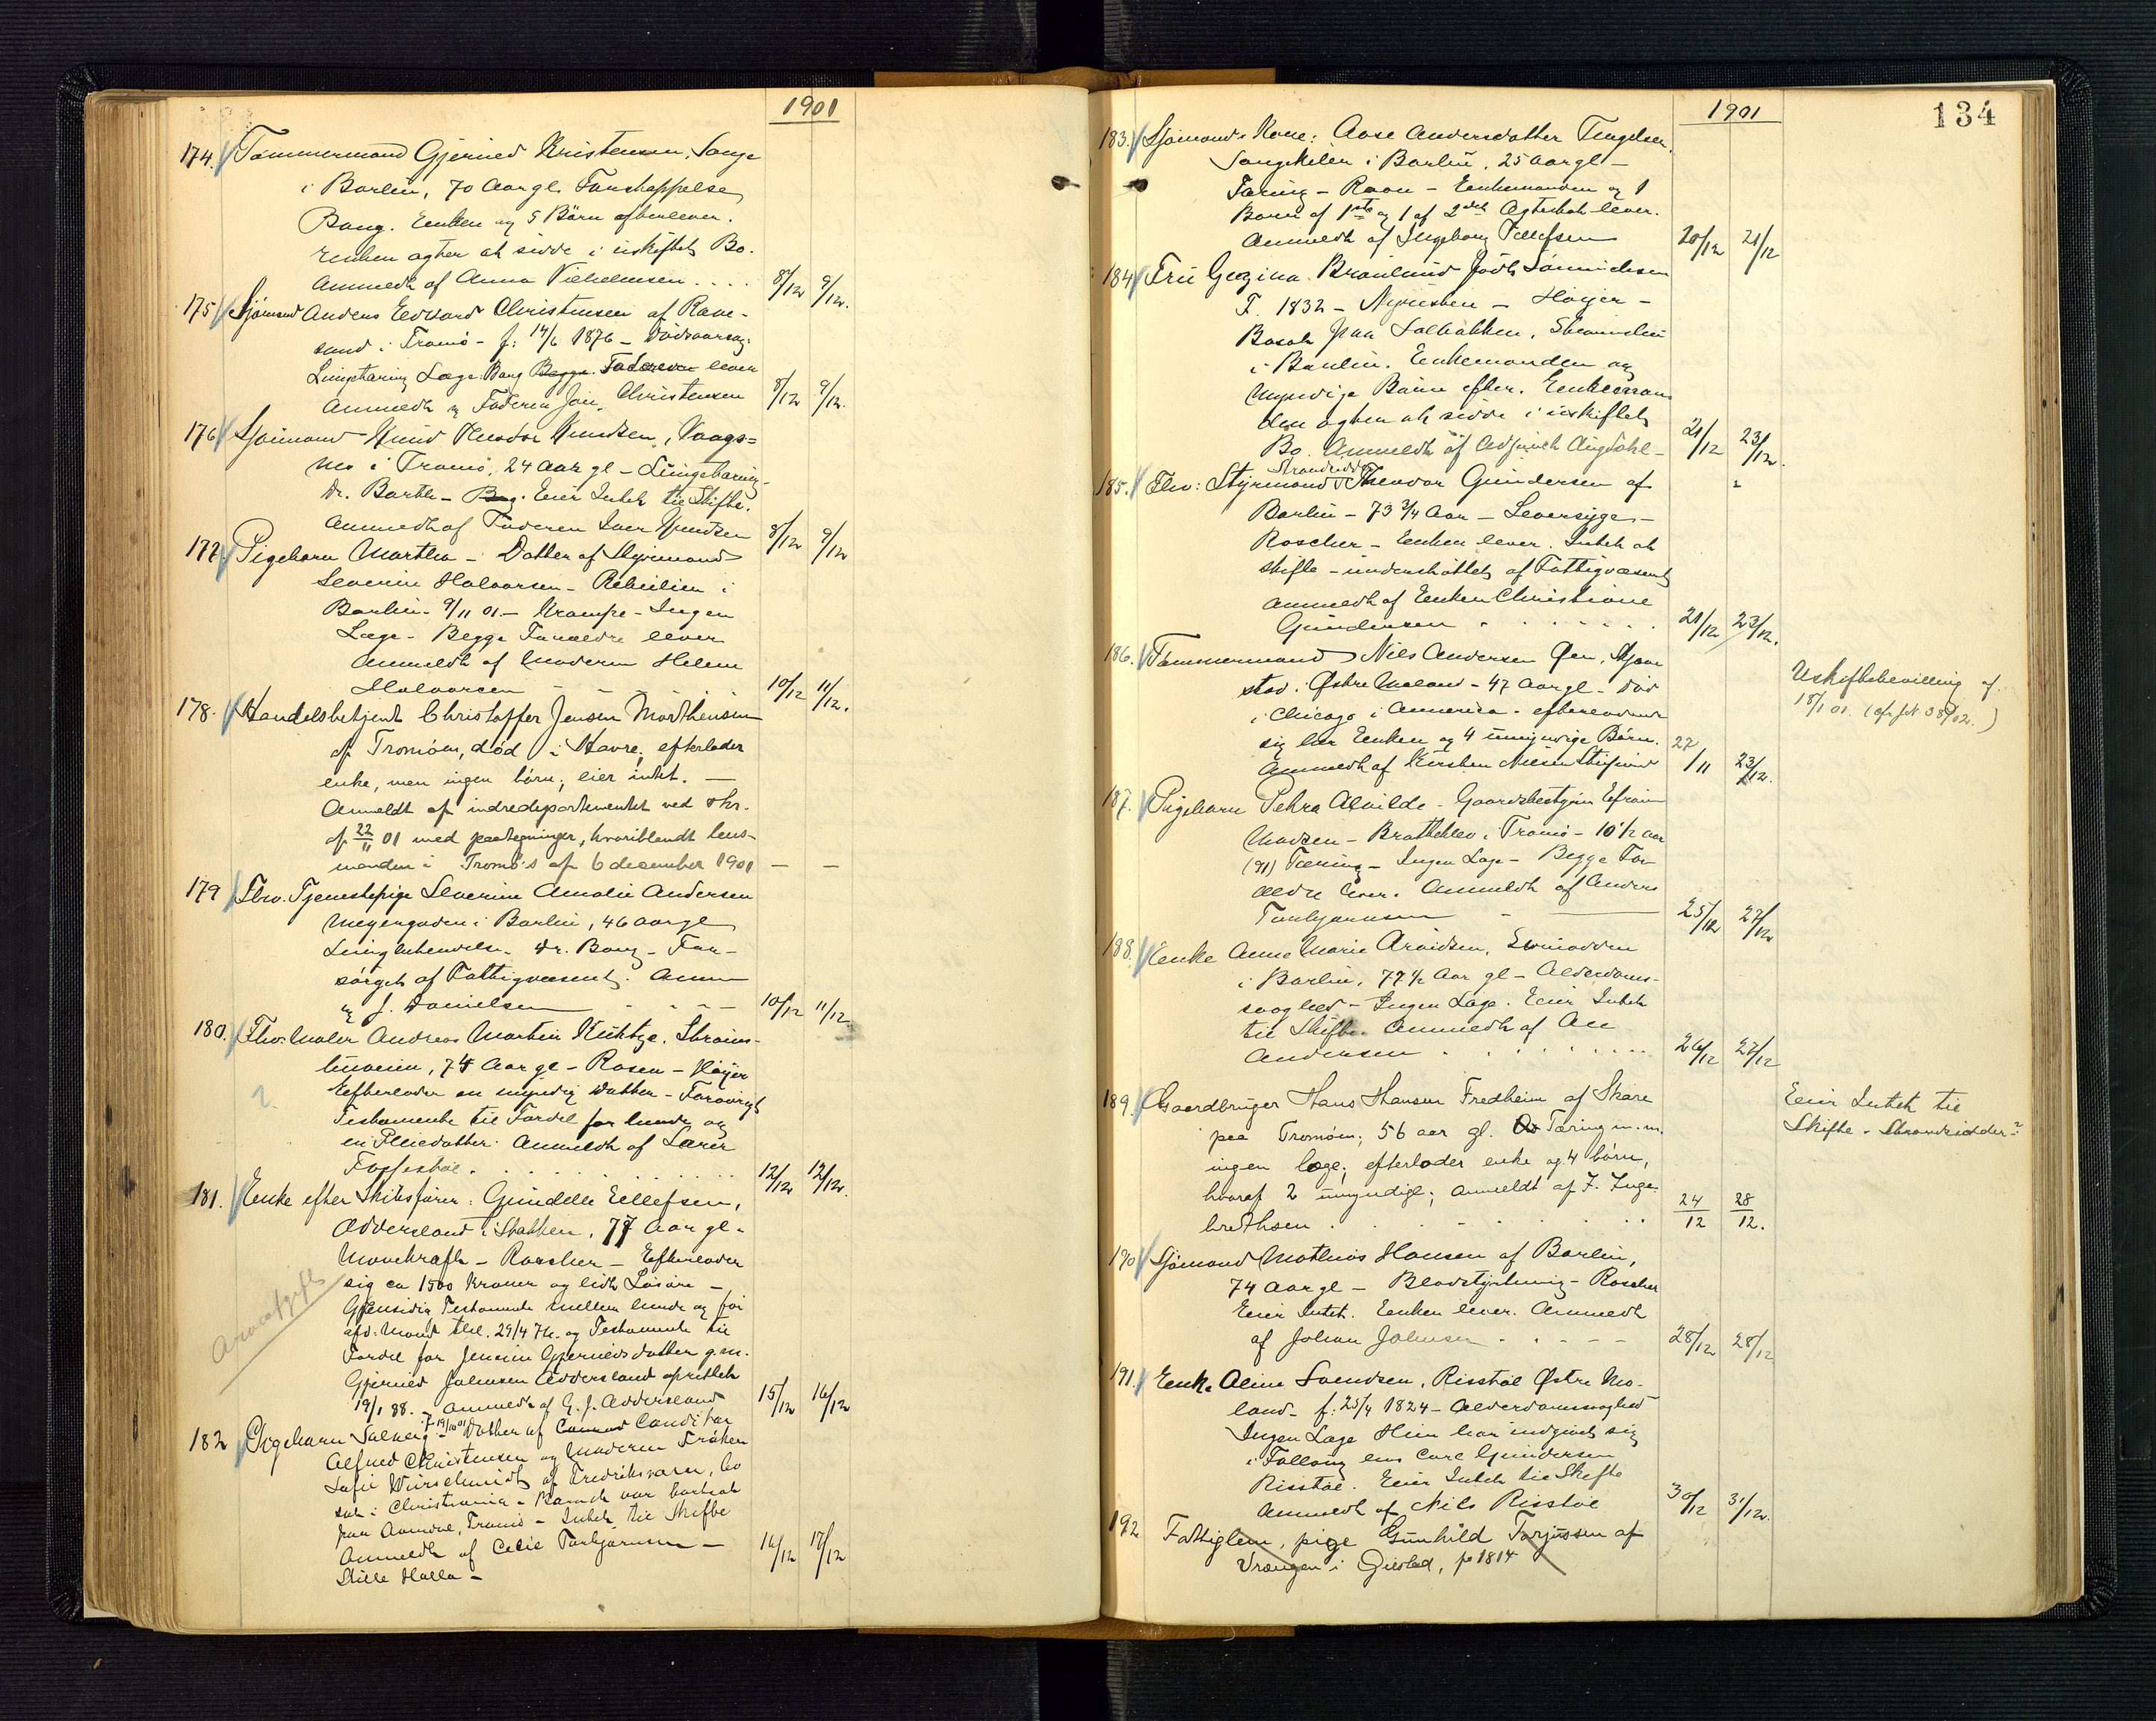 1901
174. Tømmermand Gjerued Kristensen, Songe
i Barbu, 70 Aar gl.
Bang. Enken og 5 Børn efterlever.
Enken agter at sidde i uskiftet Bo.
Anmeldt af Anna Vilhelmsen 8/12 9/12.
175 Sjømand Anders Edvard Christensen af Rave-
sand i Tromø - f: 14/6 1876 - Dødsaarsag:
Lungetæring Læge: Bang Begge Faderen lever
Anmeldt af Faderen Christensen 8/12 9/12.
176 Sjømand Knud Theodor Knudsen, Vaags-
nes i Tromø, 24 Aar gl - Lungetæring -
Dr. Barth - Eier Intet til Skifte.
Anmeldt af Faderen Iver Knudsen 8/12 9/12
177. Pigebarn Martha - Datter af Styrmand
Severin Halvorsen - Rebelien i
Barbu - 9/11 01 - Krampe - Ingen
Læge - Begge Forældre lever
Anmeldt af Moderen Helene
Halvorsen 10/12 11/12.
178. Handelsbetjent Christoffer Jensen Morthensen
af Tromøen, død i Havre, efterlader
enke, men ingen børn; eier intet. —
Anmeldt af indredepartementet ved skr.
af 22/11 01 med paategninger, hvoriblandt lens-
manden i Tromø's af 6 december 1901 — —
179 Fhv. Tjenestepige Severine Amalie Andersen
Meyergaden i Barbu, 46 aar gl
Lungebetændelse - Dr. Bang - For-
sørget af Fattigvæsenet. Anm
af J. Danielsen 10/12 11/12
180. Fhv: Maler Andreas Martin Kühtze. Strøms-
buveien, 74 Aar gl - Rosen - Høyer
Efterlader en myndig Datter - Forøvrigt
Testamente til Fordel for hende og
en Pleiedatter. Anmeldt af Lærer
12/12 12/12.
181. Enke efter Skibsfører: Gundelle Ellefsen,
Addersland i Stokken, 77 Aar gl -
Roscher - Efterlader
sig ca 1500 Kroner og lidt Løsøre -
Gjensidig Testamente mellem hende og
afd: Mand 29/4 og Testamente til
Fordel for Jensine Gjeruldsdatter g.m.
Gjeruld Johnsen Addersland oprettet
19/1 88. - Anmeldt af G. J. Addersland 15/12 16/12
182 Pigebarn Solveig - f. 19/10 01 Datter af Conditor
Alfred Christensen og Moderen Frøken
Sofie af Fredriksværn, bo
sat i Christiania - Barnet var bortsat
paa Tromø - Intet til Skifte
Anmeldt af Celie Torbjørnsen - 16/12 17/12
Lille Halla -
1901
134
183. Sjømands Kone: Aase Andersdatter
Songekilen i Barbu, 25 aar gl -
Tæring - Enkemanden og 1
Barn af 1ste og 1 af 2det Ægteskab lever.
Anmeldt af Ingeborg Tellefsen 20/12 21/12
184 Fru Gezina Brønlund født Sønnichsen
F. 1832 - - Høyer -
Bosat paa Solbakken, Strømsbu
i Barbu. Enkemanden og
myndige Børn efter. Enkeman
den agter at sidde i uskiftet
Bo. Anmeldt af Adjunct Augdahl - 21/12 23/12.
185. Fhv: Styrmand Strandridder Theodor Gundersen af
Barbu - 73 3/4 Aar - Leversyge -
Roscher - Enken lever. Intet at
skifte - understøttet af Fattigvæsenet
Anmeldt af Enken Christiane
Gundersen 21/12 23/12.
186. Tømmermand Nils Andersen
stad i Østre Moland - 47 Aar gl - død
i Chicago i Amerika - efterladende
sig her Enken og 4 umyndige Børn.
Anmeldt af Kirsten Nilsen 27/11 23/12.
Uskiftebevilling af
18/1 01.
187. Pigebarn Petra Alvilde - Gaardsbestyrer Efraim
Madsen - Brattekleiv i Tromø - 10 1/2 aar
(91) Tæring - Ingen Læge - Begge For
ældre lever. Anmeldt af Anders
Torbjørnsen 25/12 27/12
188. Enke Anne Marie Arvidsen,
i Barbu, 77 1/2 Aar gl - Alderdoms-
svaghed - Ingen Læge. Eier Intet
til Skifte. Anmeldt af
Andersen 26/12 27/12
189. Gaardbruger Hans Hansen Fredheim af Skare
paa Tromøen; 56 aar gl. Tæring m.m.
ingen læge; efterlader enke og 4 børn,
hvoraf 2 umyndige; Anmeldt af F. Inge
brethsen 24/12 28/12.
Eier Intet til
Skifte - Strandridder
190 Sjømand Mathias Hansen af Barbu,
74 Aar gl - Blodstyrtning - Roscher
Eier Intet. Enken lever. Anmeldt
af Johan Johnsen 28/12 28/12
191. Enke Aline Svendsen, Risstøl Østre Mo-
land - f: 25/4 1824 - Alderdomssvaghed
Ingen Læge Hun har indgivet sig
i Gundersen
Risstøl. Eier Intet til Skifte
Anmeldt af Nils Risstøl 30/12 31/12.
192 Fattiglem, pige Gunhild Torjussen af
Vrængen i Gjerstad, f 1814